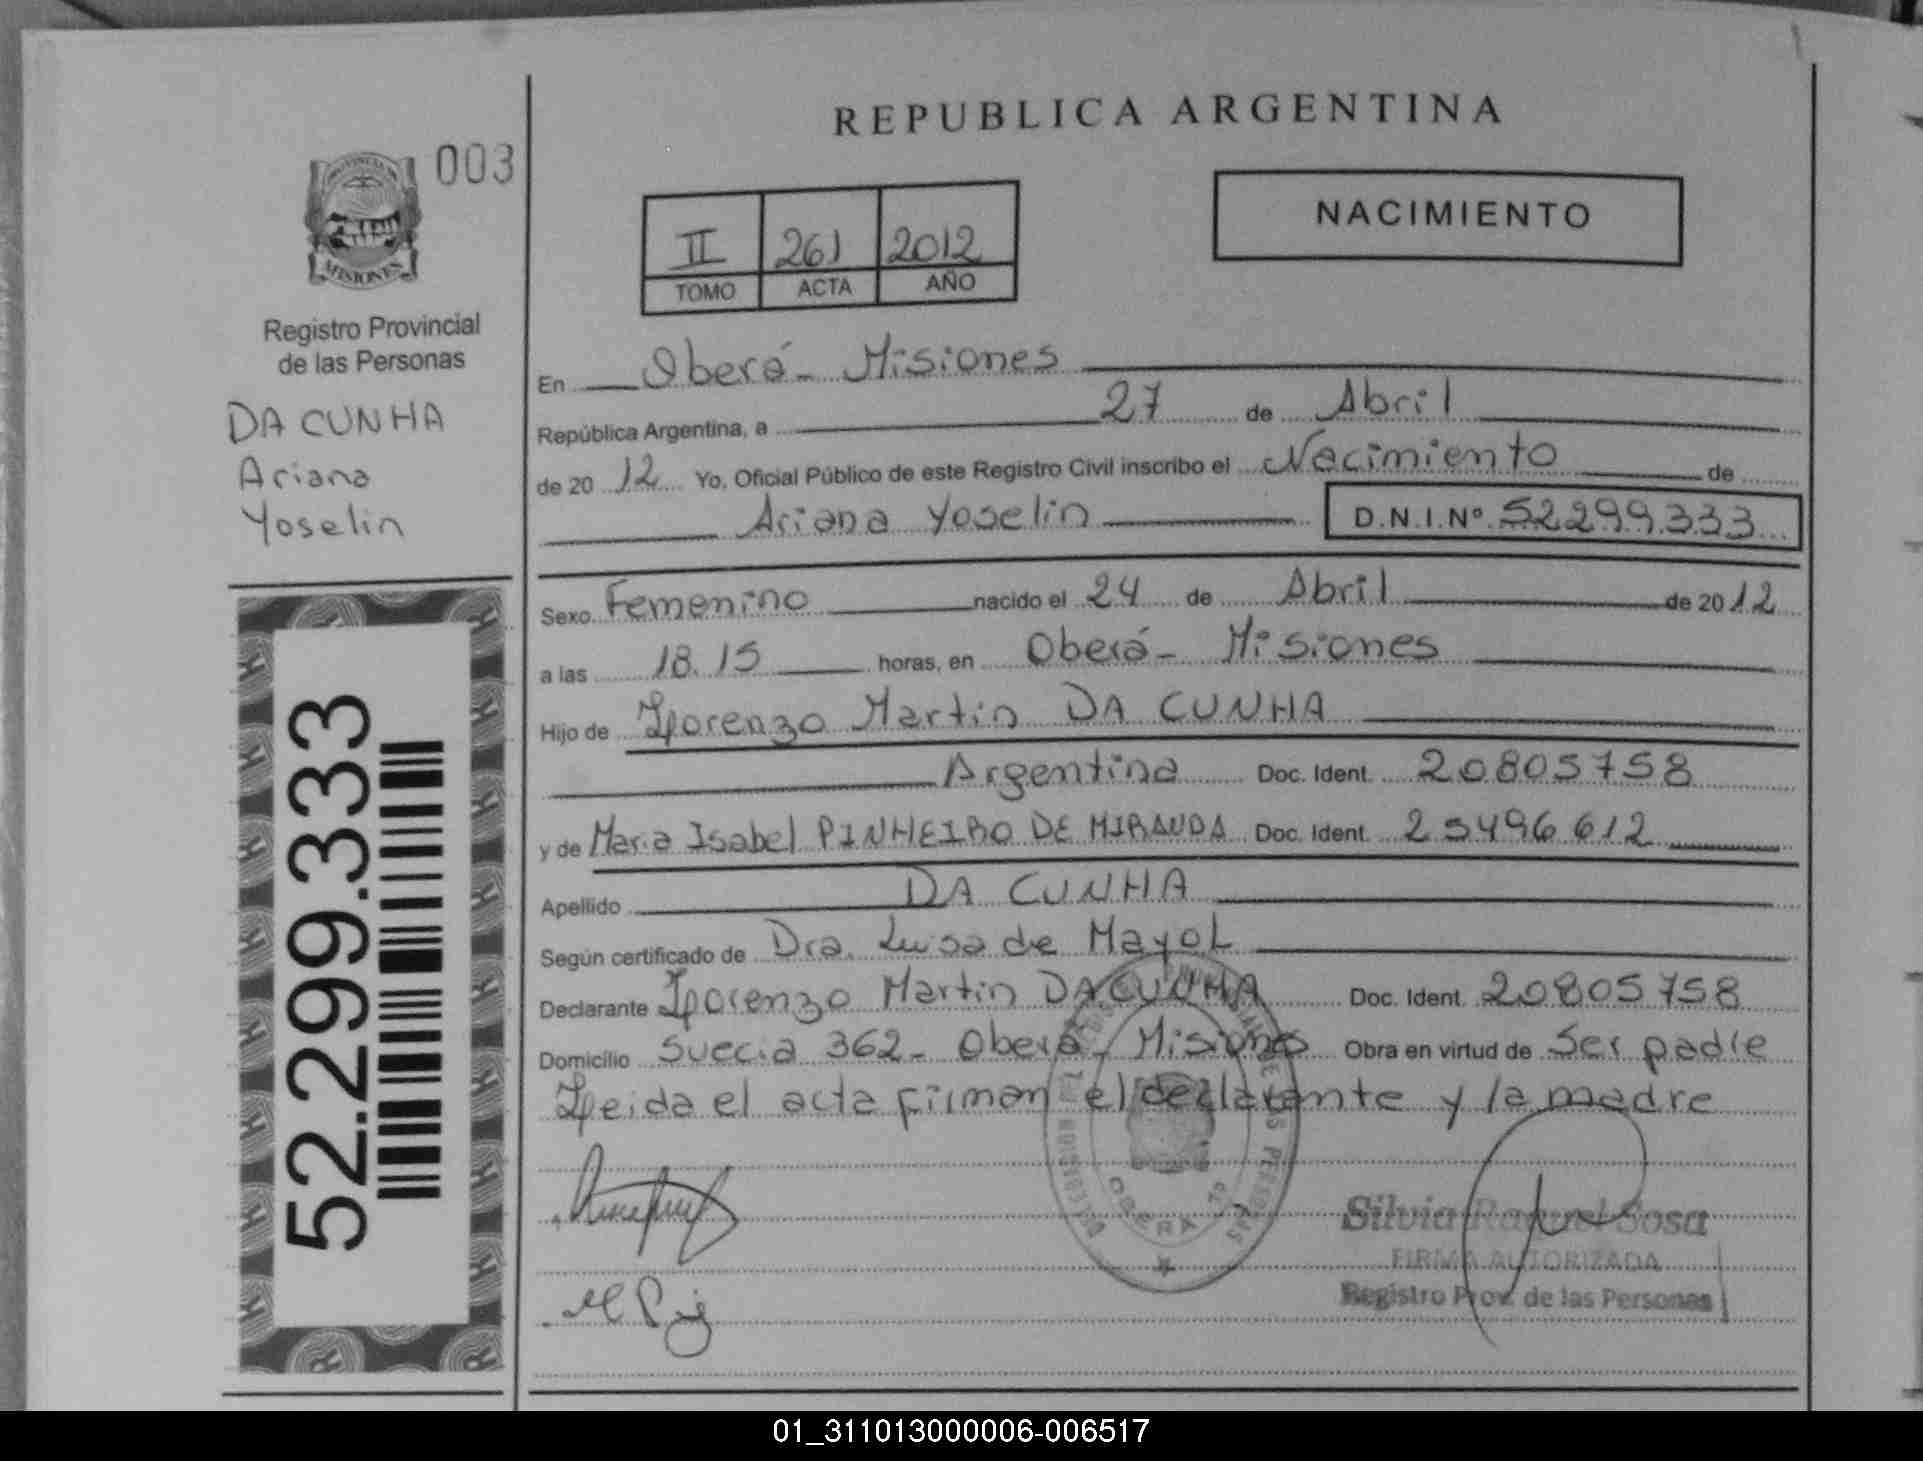 REPUBLICA ARGENTINA
003
PROVINCIA DE
MISIONES
Registro Provincial
de las Personas
DA CUNHA
Ariana
Yoselin
52.299.333
II 261 2012
TOMO ACTA AÑO
NACIMIENTO
En Oberá - Misiones
República Argentina, a 27 de Abril
de 20 12 Yo, Oficial Público de este Registro Civil inscribo el Nacimiento de
Ariana Yoselin D.N.I.Nº 52299333
Sexo Femenino nacido el 24 de Abril de 20 12
a las 18.15 horas, en Oberá - Misiones
Hijo de Lorenzo Martin DA CUNHA
Argentina Doc. Ident. 20805758
y de Maria Isabel PINHEIRO DE MIRANDA Doc. Ident. 25496612
Apellido DA CUNHA
Según certificado de Dra. Luisa de Mayol
Declarante Lorenzo Martin DA CUNHA Doc. Ident. 20805758
Domicilio Suecia 362 - Oberá - Misiones Obra en virtud de Ser padre
Leida el acta firman el declarante y la madre
OBERA
Silvia Raquel Sosa
FIRMA AUTORIZADA
Registro Prov. de las Personas
01_311013000006-006517